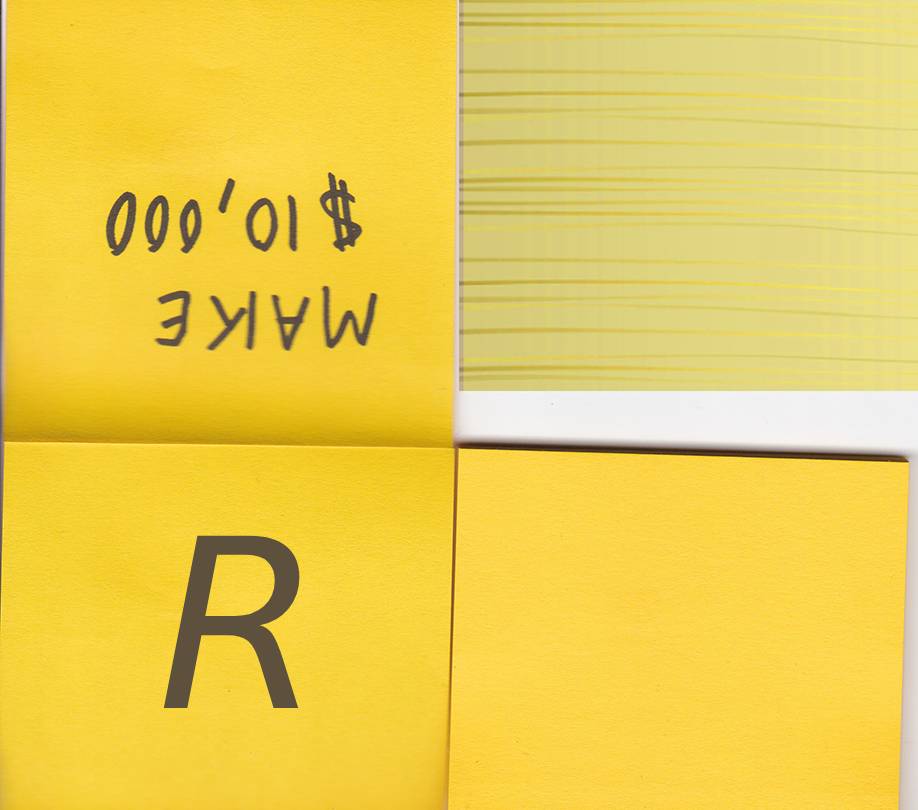 MAKE
$10,000
R